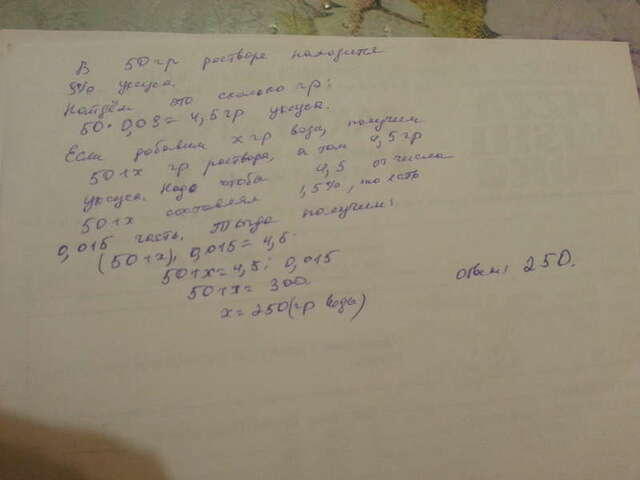 В 50 гр растворе находится
9% уксуса.
Найдём это сколько гр:
50 · 0,09 = 4,5 гр уксуса.
Если добавим x гр воды, получим
50+x гр раствора, а там 4,5 гр
уксуса. Надо чтобы 4,5 от числа
50+x составлял 1,5%, то есть
0,015 часть. Тогда получим:
(50+x) · 0,015 = 4,5.
50+x = 4,5 : 0,015
50+x = 300
x = 250 (гр воды)
Ответ: 250.